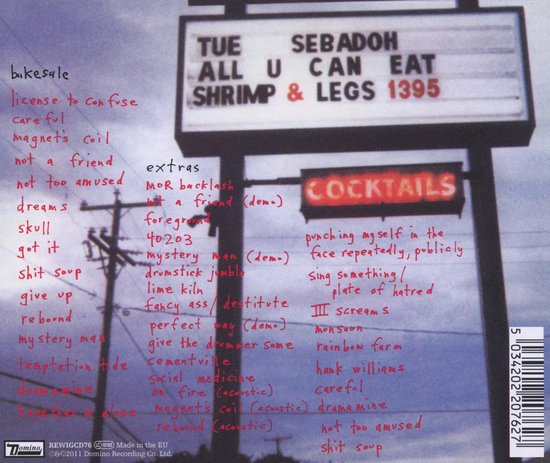 TUE SEBADOH
ALL U CAN EAT
SHRIMP & LEGS 1395
COCKTAILS
bakesale
license to confuse
careful
magnet's coil
not a friend
not too amused
dreams
skull
got it
shit soup
give up
rebound
mystery man
temptation tide
dramamine
together or alone
extras
MOR backlash
not a friend (demo)
foreground
40203
mystery man (demo)
drumstick jumble
lime kiln
fancy ass/destitute
perfect way (demo)
give the drummer some
cementville
social medicine
on fire (acoustic)
magnet's coil (acoustic)
rebound (acoustic)
punching myself in the
face repeatedly, publicly
sing something/
plate of hatred
III screams
monsoon
rainbow farm
hank williams
careful
dramamine
not too amused
shit soup
5 034202 207627
Domino
REWIGCD76 Made in the EU
℗&©2011 Domino Recording Co. Ltd.